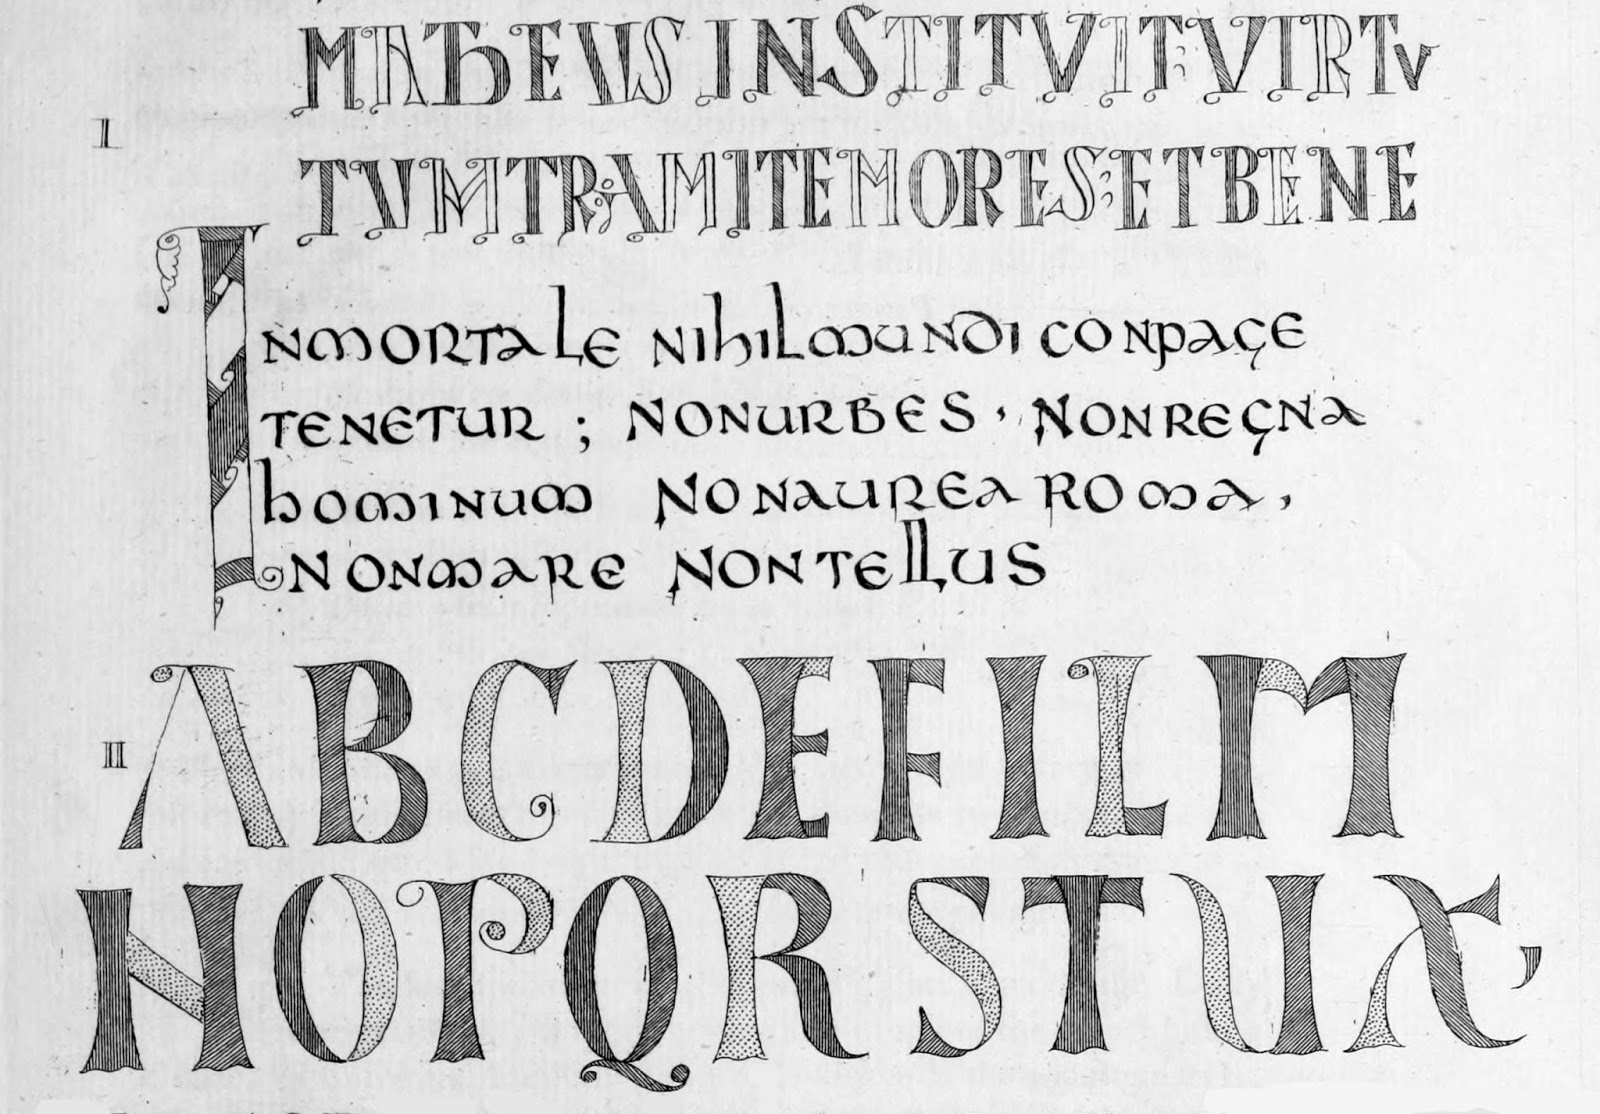 MATHEUS INSTITUIT: VIRTU
I
TUM TRAMITE MORES: ET BENE
INMORTALE NIhIL MUNDI CONPAGE
TENETUR ; NON URBES · NON REGNA
hOMINUM NON AUREA ROMA,
NON MARE NON TELLUS
II
A B C D E F I L M
N O P Q R S T U X ,